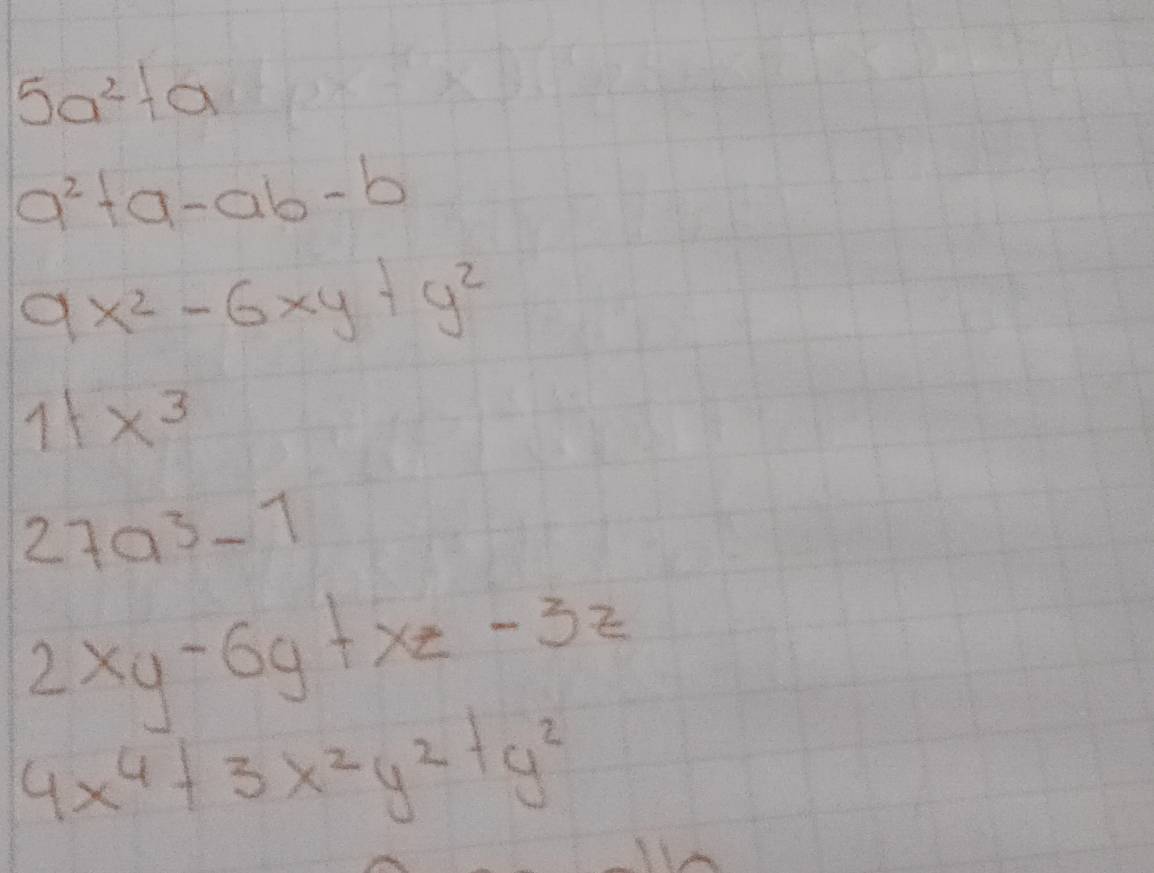 5a² + a
a² + a - ab - b
9x² - 6xy + y²
1 + x³
27a³ - 1
2xy - 6y + xz - 3z
4x⁴ + 3x²y² + y²